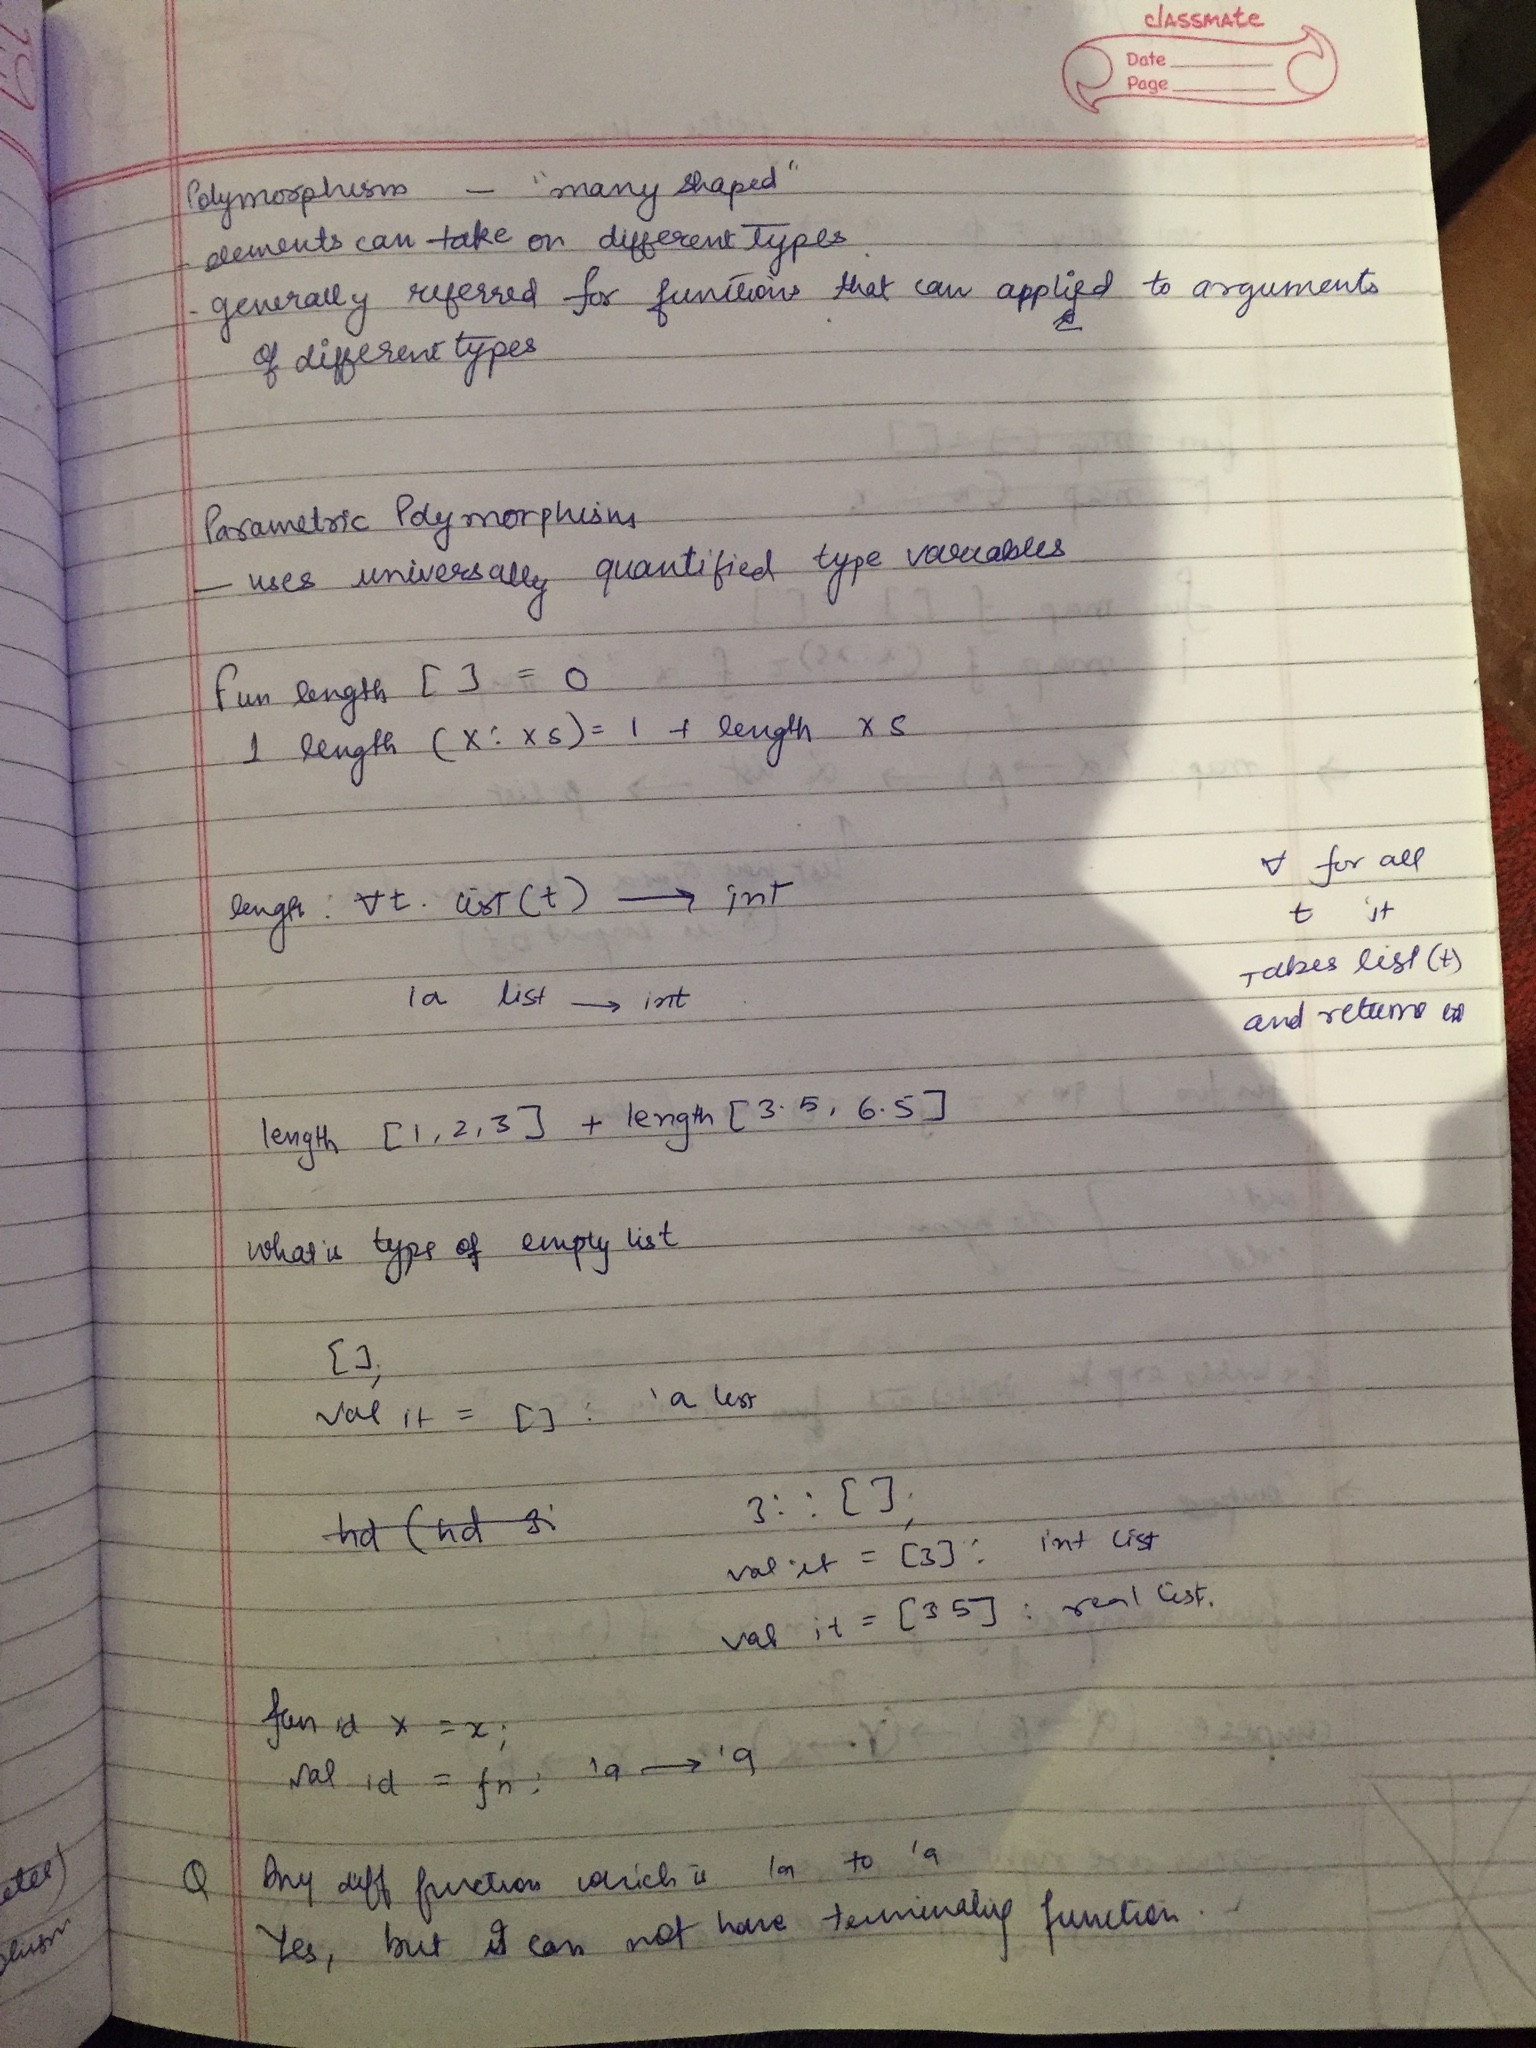 classmate
Date
Page
Polymorphism — "many shaped"
- elements can take on different types
- generally referred for functions that can applied to arguments
of different types
Parametric Polymorphism
— uses universally quantified type variables
Fun length [ ] = 0
| length (x:xs) = 1 + length xs
length : ∀t. list(t) → int
'a list → int
∀ for all
t it
Takes list(t)
and returns
length [1,2,3] + length [3.5, 6.5]
What is type of empty list
[ ];
val it = [ ] : 'a list
hd (hd
3 :: [ ];
val it = [3] : int list
val it = [3 5] : real list.
fun id x = x;
val id = fn : 'a → 'a
Q Any diff function which is 'a to 'a
Yes, but it can not have terminating function.